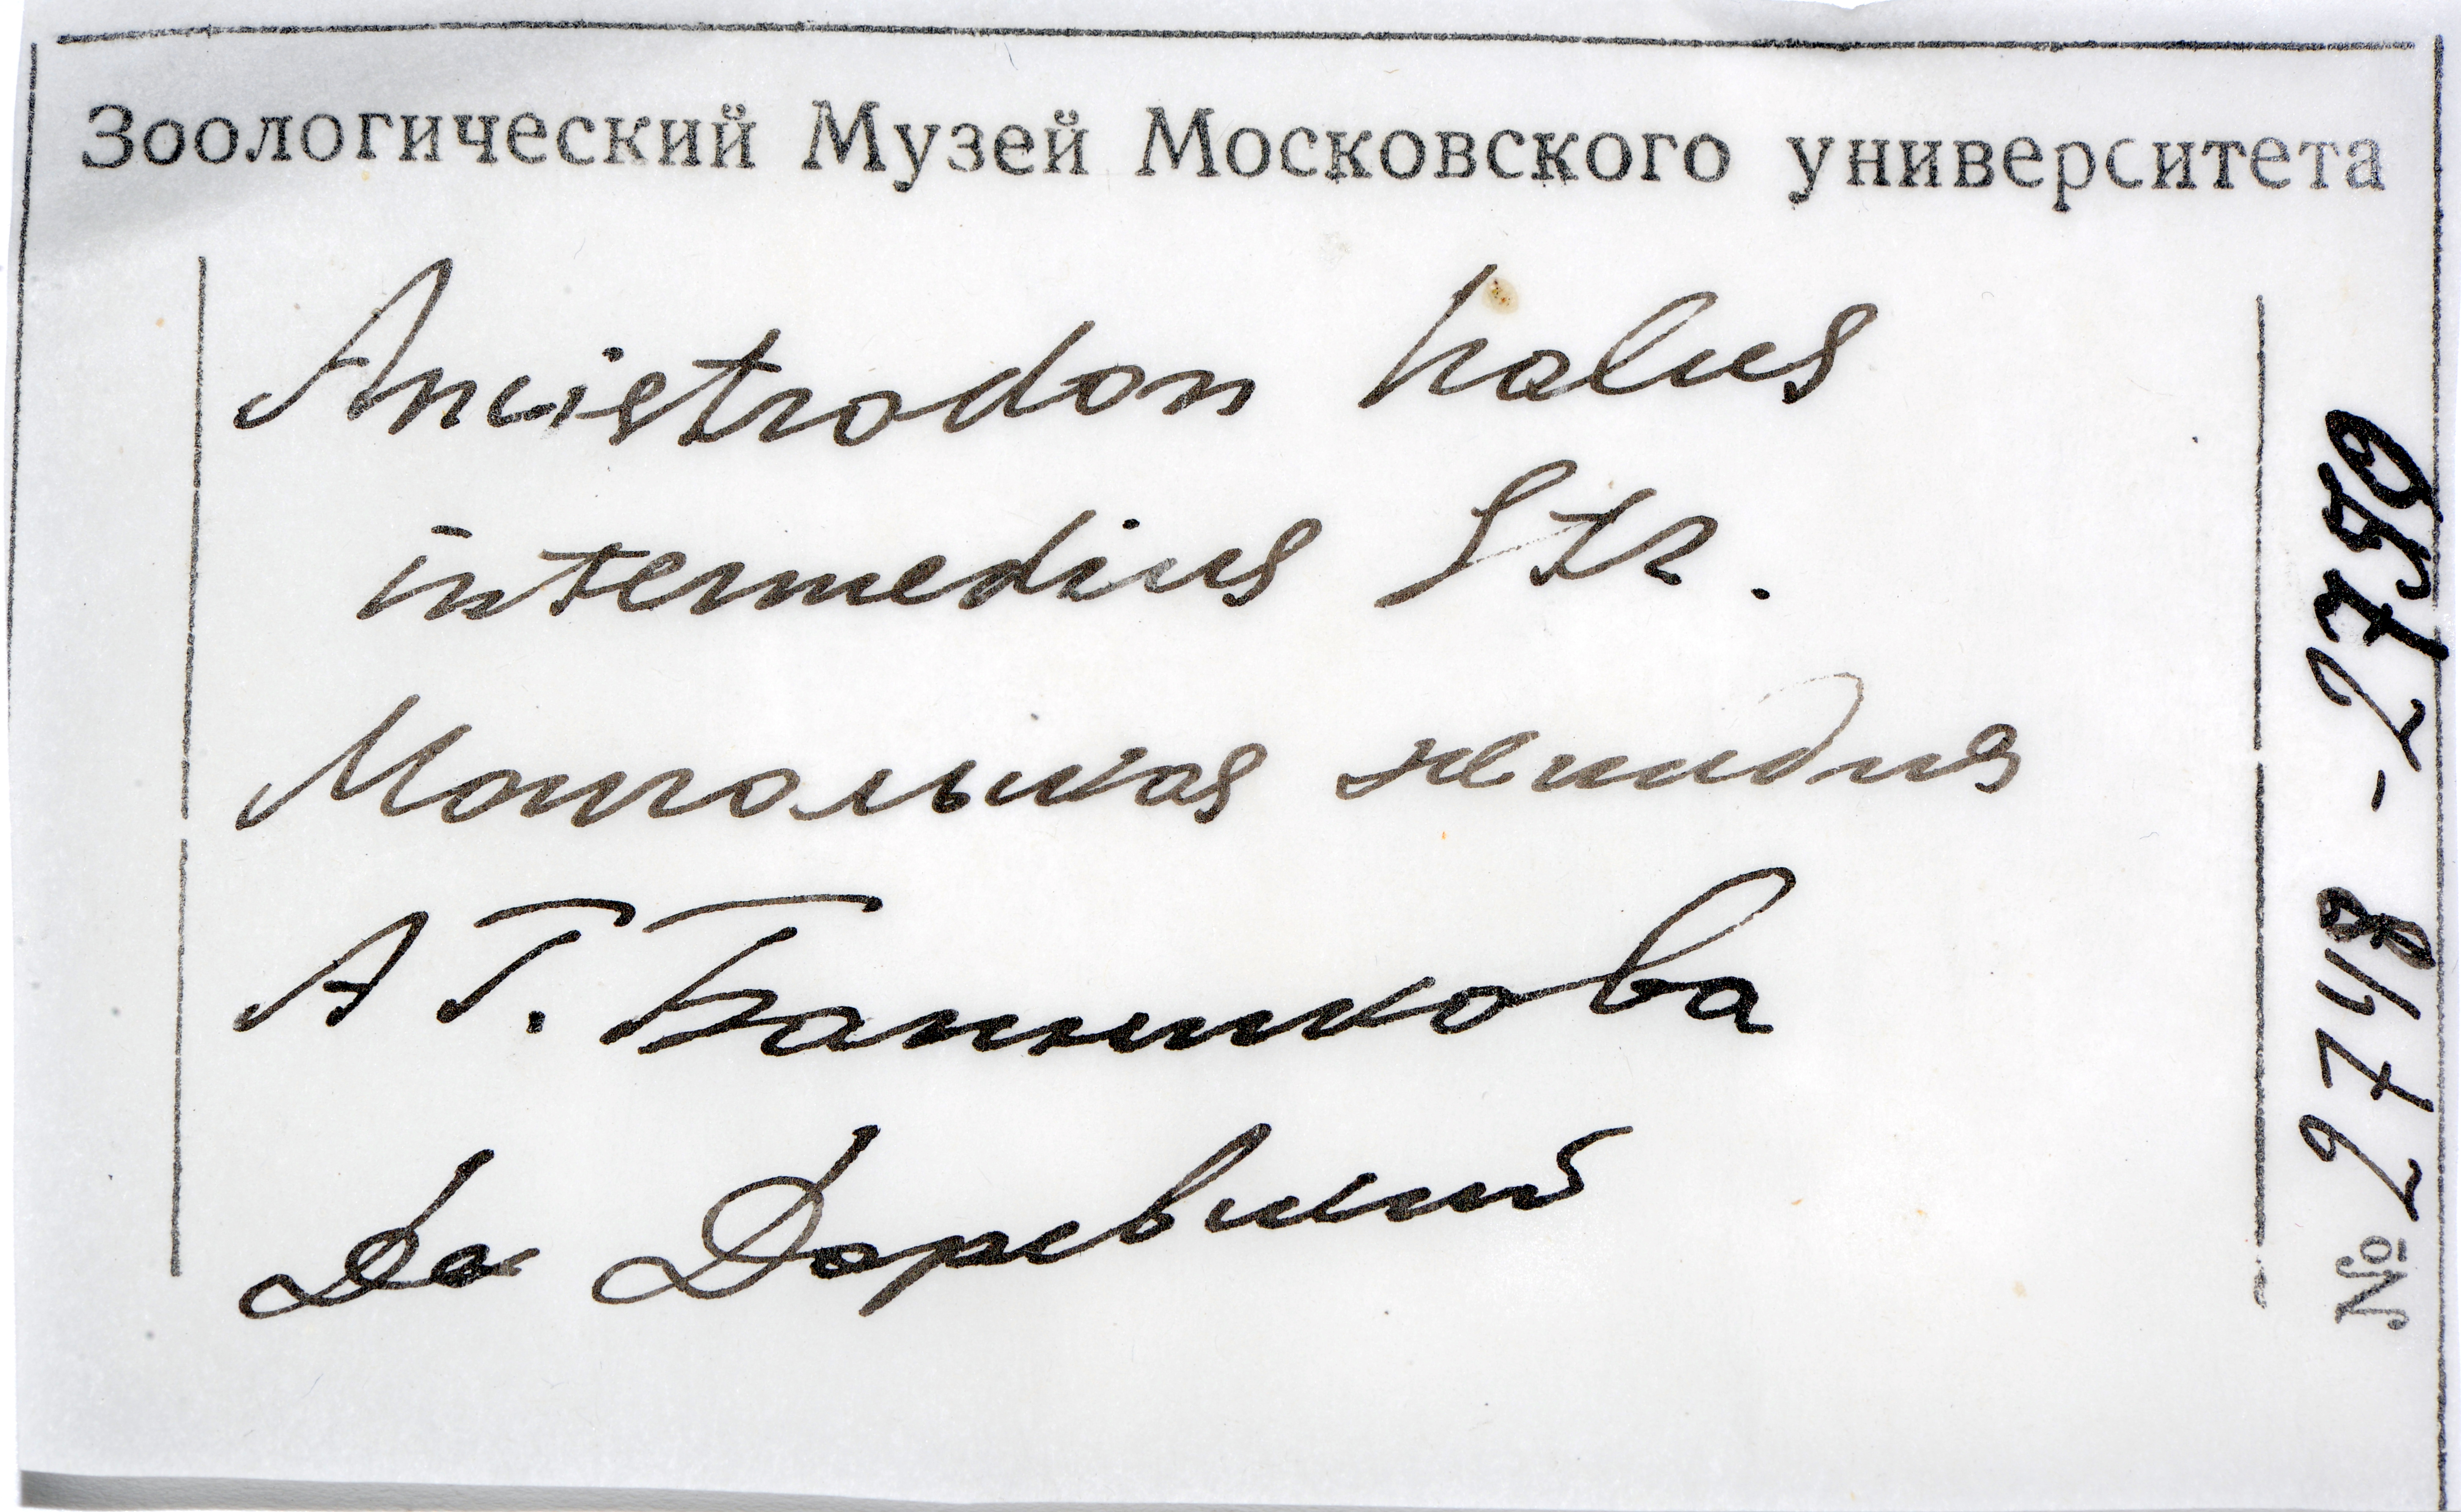 Зоологический Музей Московского университета
Ancistrodon halus
intermedius Str.
Монгольская экспедиция
А Г. Банникова
Det Даревский
№ 2748 - 2750